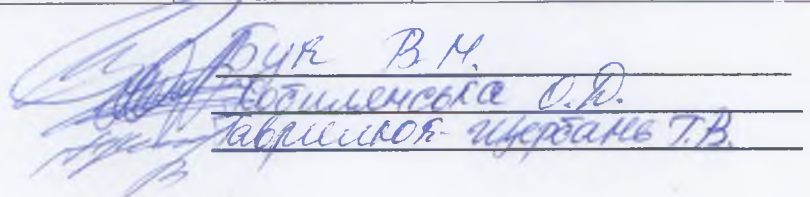 Бук В.М.
Кобиленська О.Д.
Гаврилюк-Щербань Т.В.